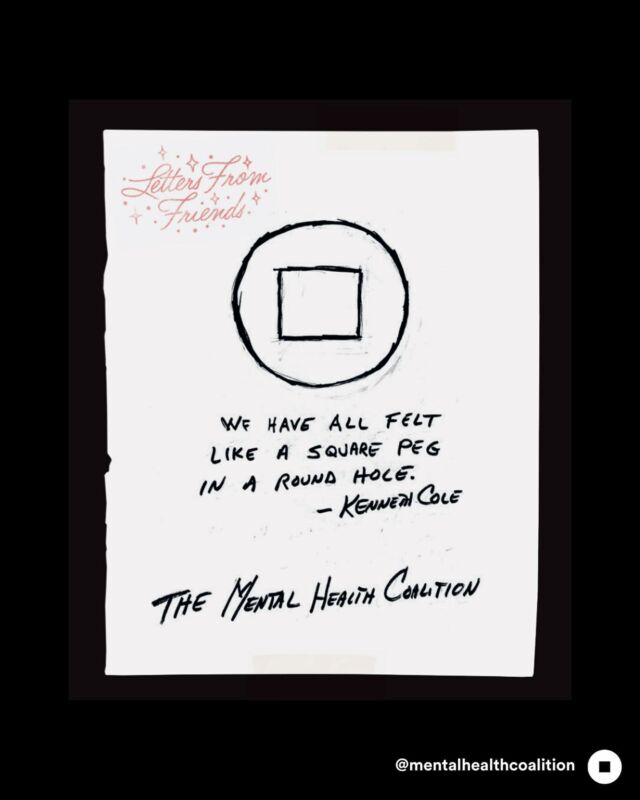 Letters From
Friends
WE HAVE ALL FELT
LIKE A SQUARE PEG
IN A ROUND HOLE.
— KENNETH COLE
THE MENTAL HEALTH COALITION
@mentalhealthcoalition